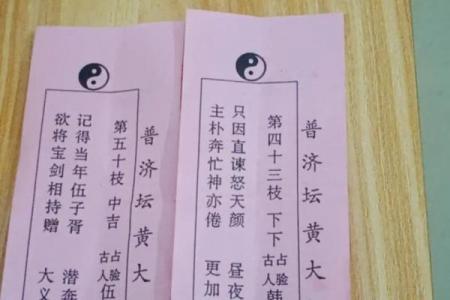 普济坛黄大
第五十枝 中吉 占验古人伍
记得当年伍子胥 潜奔
欲将宝剑相持赠 大义
普济坛黄大
第四十三枝 下下 占验古人韩
只因直谏怒天颜 昼夜
主朴奔忙神亦倦 更加